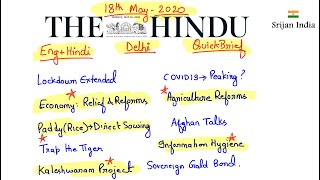 18th May - 2020
THE HINDU
Srijan India
Eng+Hindi
Delhi
Quick Brief
Lockdown Extended
COVID19 → Peaking?
Economy: Relief & Reforms
Agriculture Reforms
Paddy (Rice) → Direct Sowing
Afghan Talks
Trap the Tiger
Information Hygiene
Kaleshwaram Project
Sovereign Gold Bond.